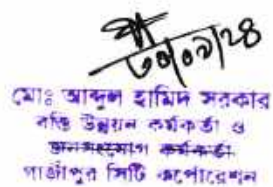 ৩০/০৯/২৪
মোঃ আব্দুল হামিদ সরকার
বস্তি উন্নয়ন কর্মকর্তা ও
জনসংযোগ কর্মকর্তা
গাজীপুর সিটি কর্পোরেশন